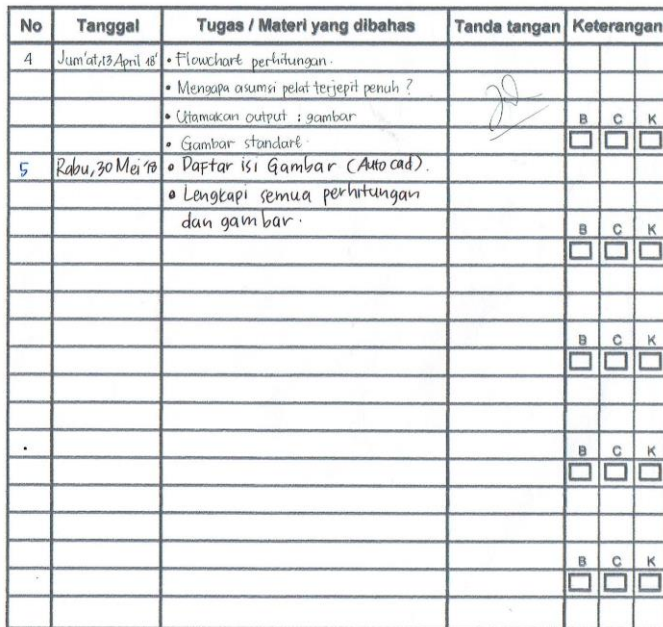 No Tanggal Tugas / Materi yang dibahas Tanda tangan Keterangan
4 Jum'at, 13 April 18' • Flowchart perhitungan.
• Mengapa asumsi pelat terjepit penuh ?
• Utamakan output : gambar
B C K
• Gambar standart.
5 Rabu, 30 Mei '18 • Daftar isi Gambar (Auto cad).
• Lengkapi semua perhitungan
dan gambar.
B C K
B C K
B C K
B C K